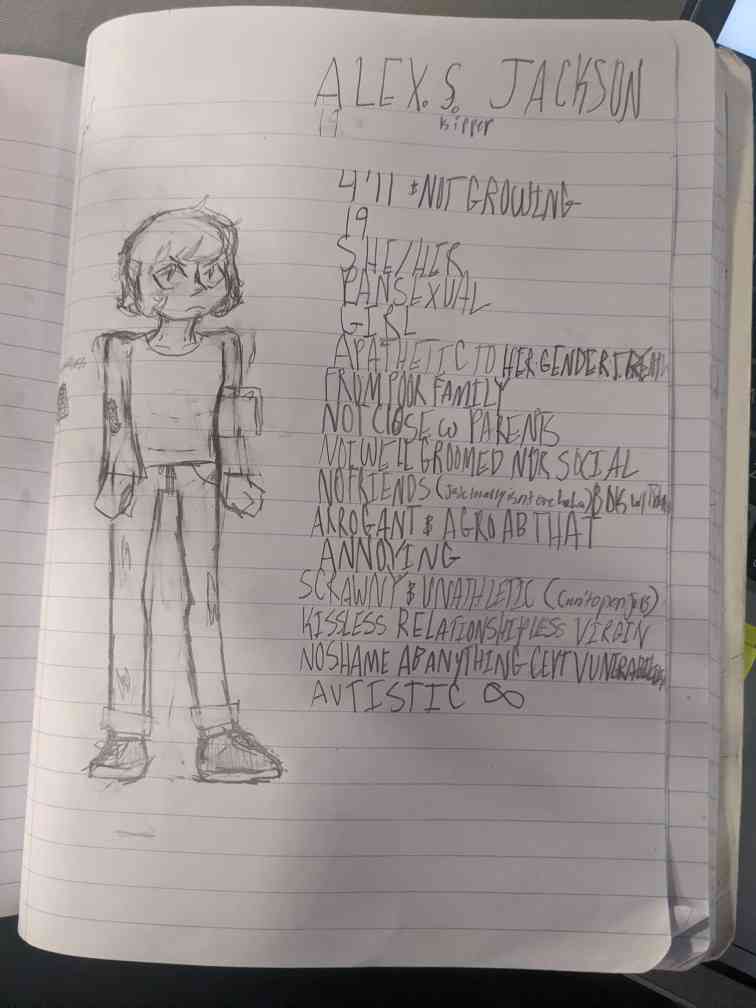 ALEX. S. JACKSON
19 kipper
4'11 & NOT GROWING
19
SHE/HER
PANSEXUAL
GIRL
APATHETIC TO HER GENDER
FROM POOR FAMILY
NOT CLOSE W PARENTS
NOT WELL GROOMED NOR SOCIAL
NO FRIENDS
ARROGANT & AGRO AB THAT
ANNOYING
SCRAWNY & UNATHLETIC (can't open jars)
KISSLESS RELATIONSHIPLESS VIRGIN
NO SHAME AB ANYTHING CEPT
AUTISTIC ∞